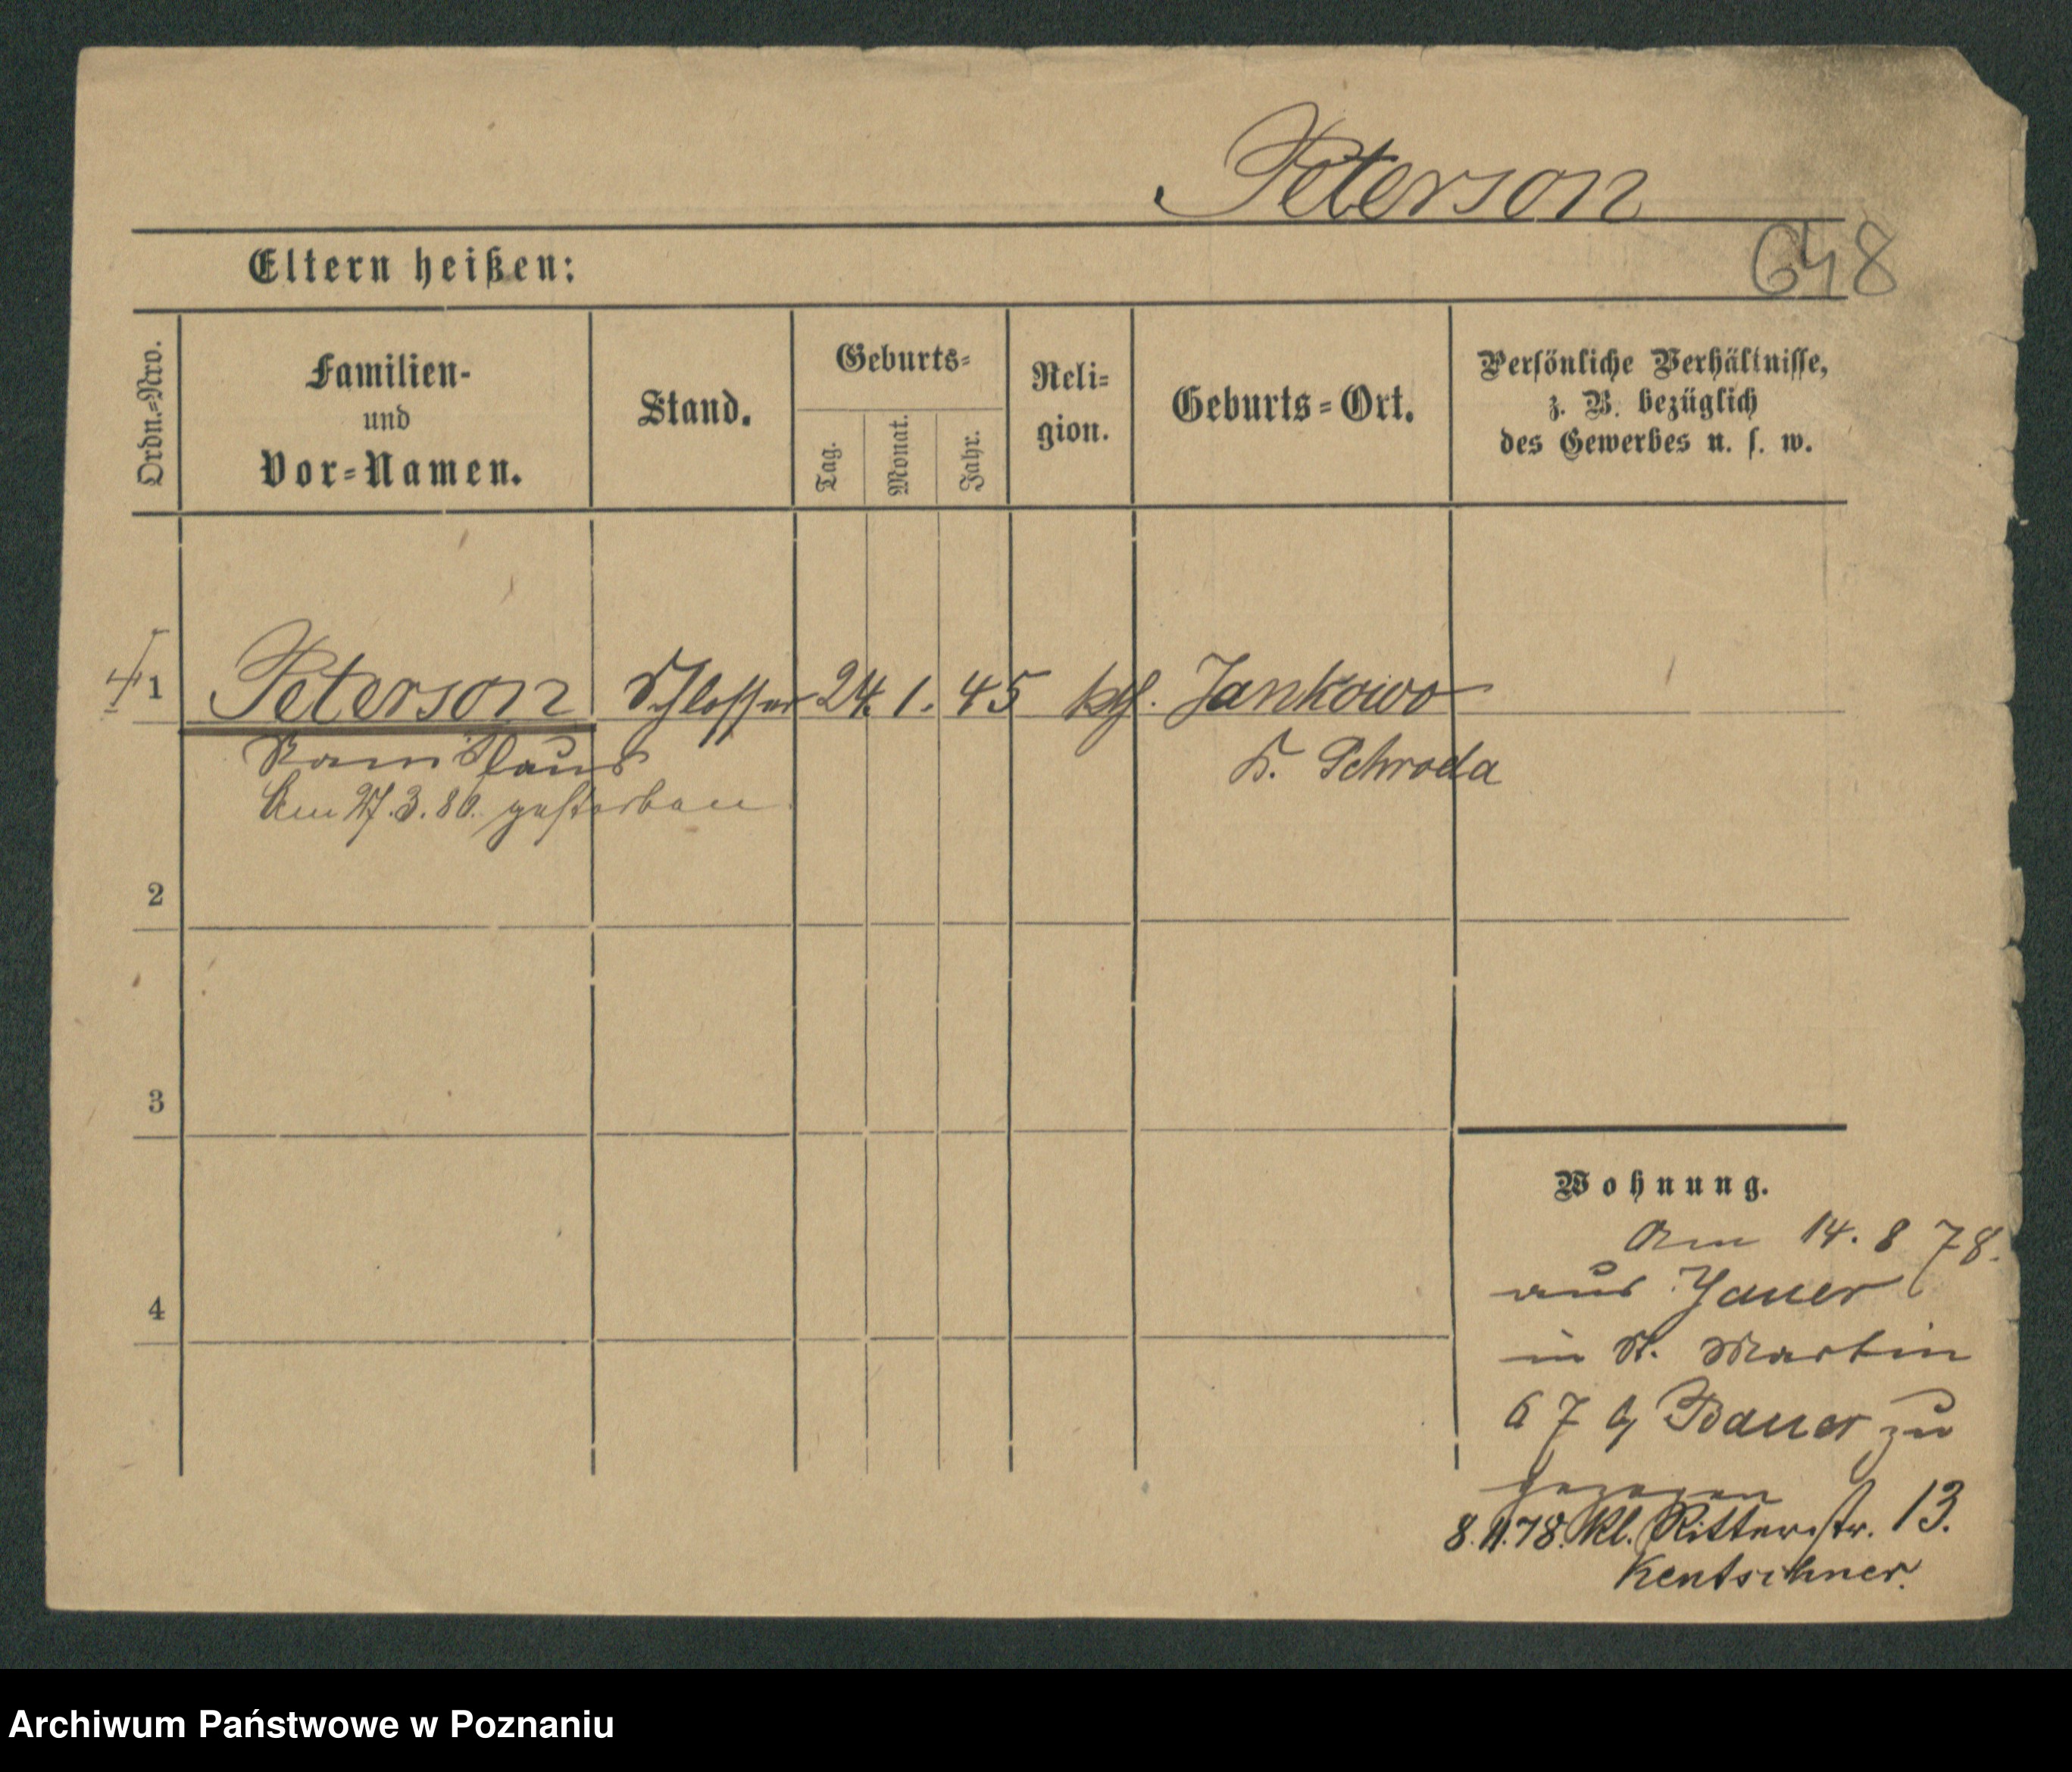 Peterson
648
Eltern heißen:
Ordn.=Nro.
Familien-
und
Vor=Namen.
Stand.
Geburts=
Tag.
Monat.
Jahr.
Reli=
gion.
Geburts=Ort.
Persönliche Verhältnisse,
z. B. bezüglich
des Gewerbes u. s. w.
1 Peterson Schlosser 24. 1. 45 kth. Jankowo
K. Schroda
Am 27.3.80. gestorben
2
3
4
Wohnung.
Am 14. 8 78.
aus Jauer
in St. Martin
67 Bauer zu
gezogen
8.11.78. Kl. Ritterstr. 13.
Kentschner.
Archiwum Państwowe w Poznaniu